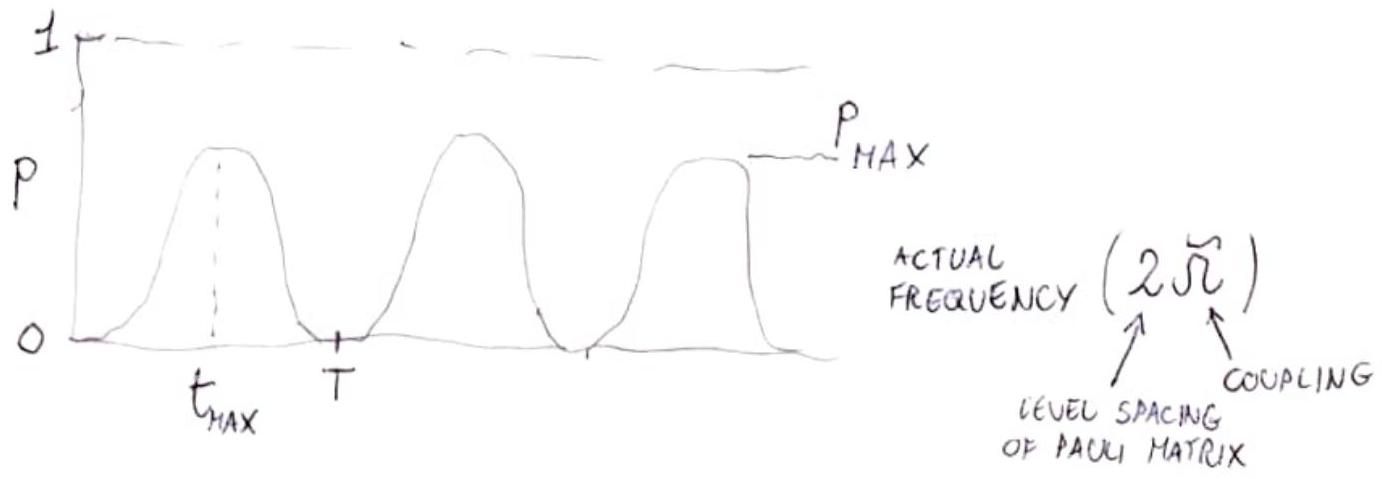 1
P
0
t_MAX
T
P_MAX
ACTUAL
FREQUENCY (2Ω̃)
LEVEL SPACING
OF PAULI MATRIX
COUPLING